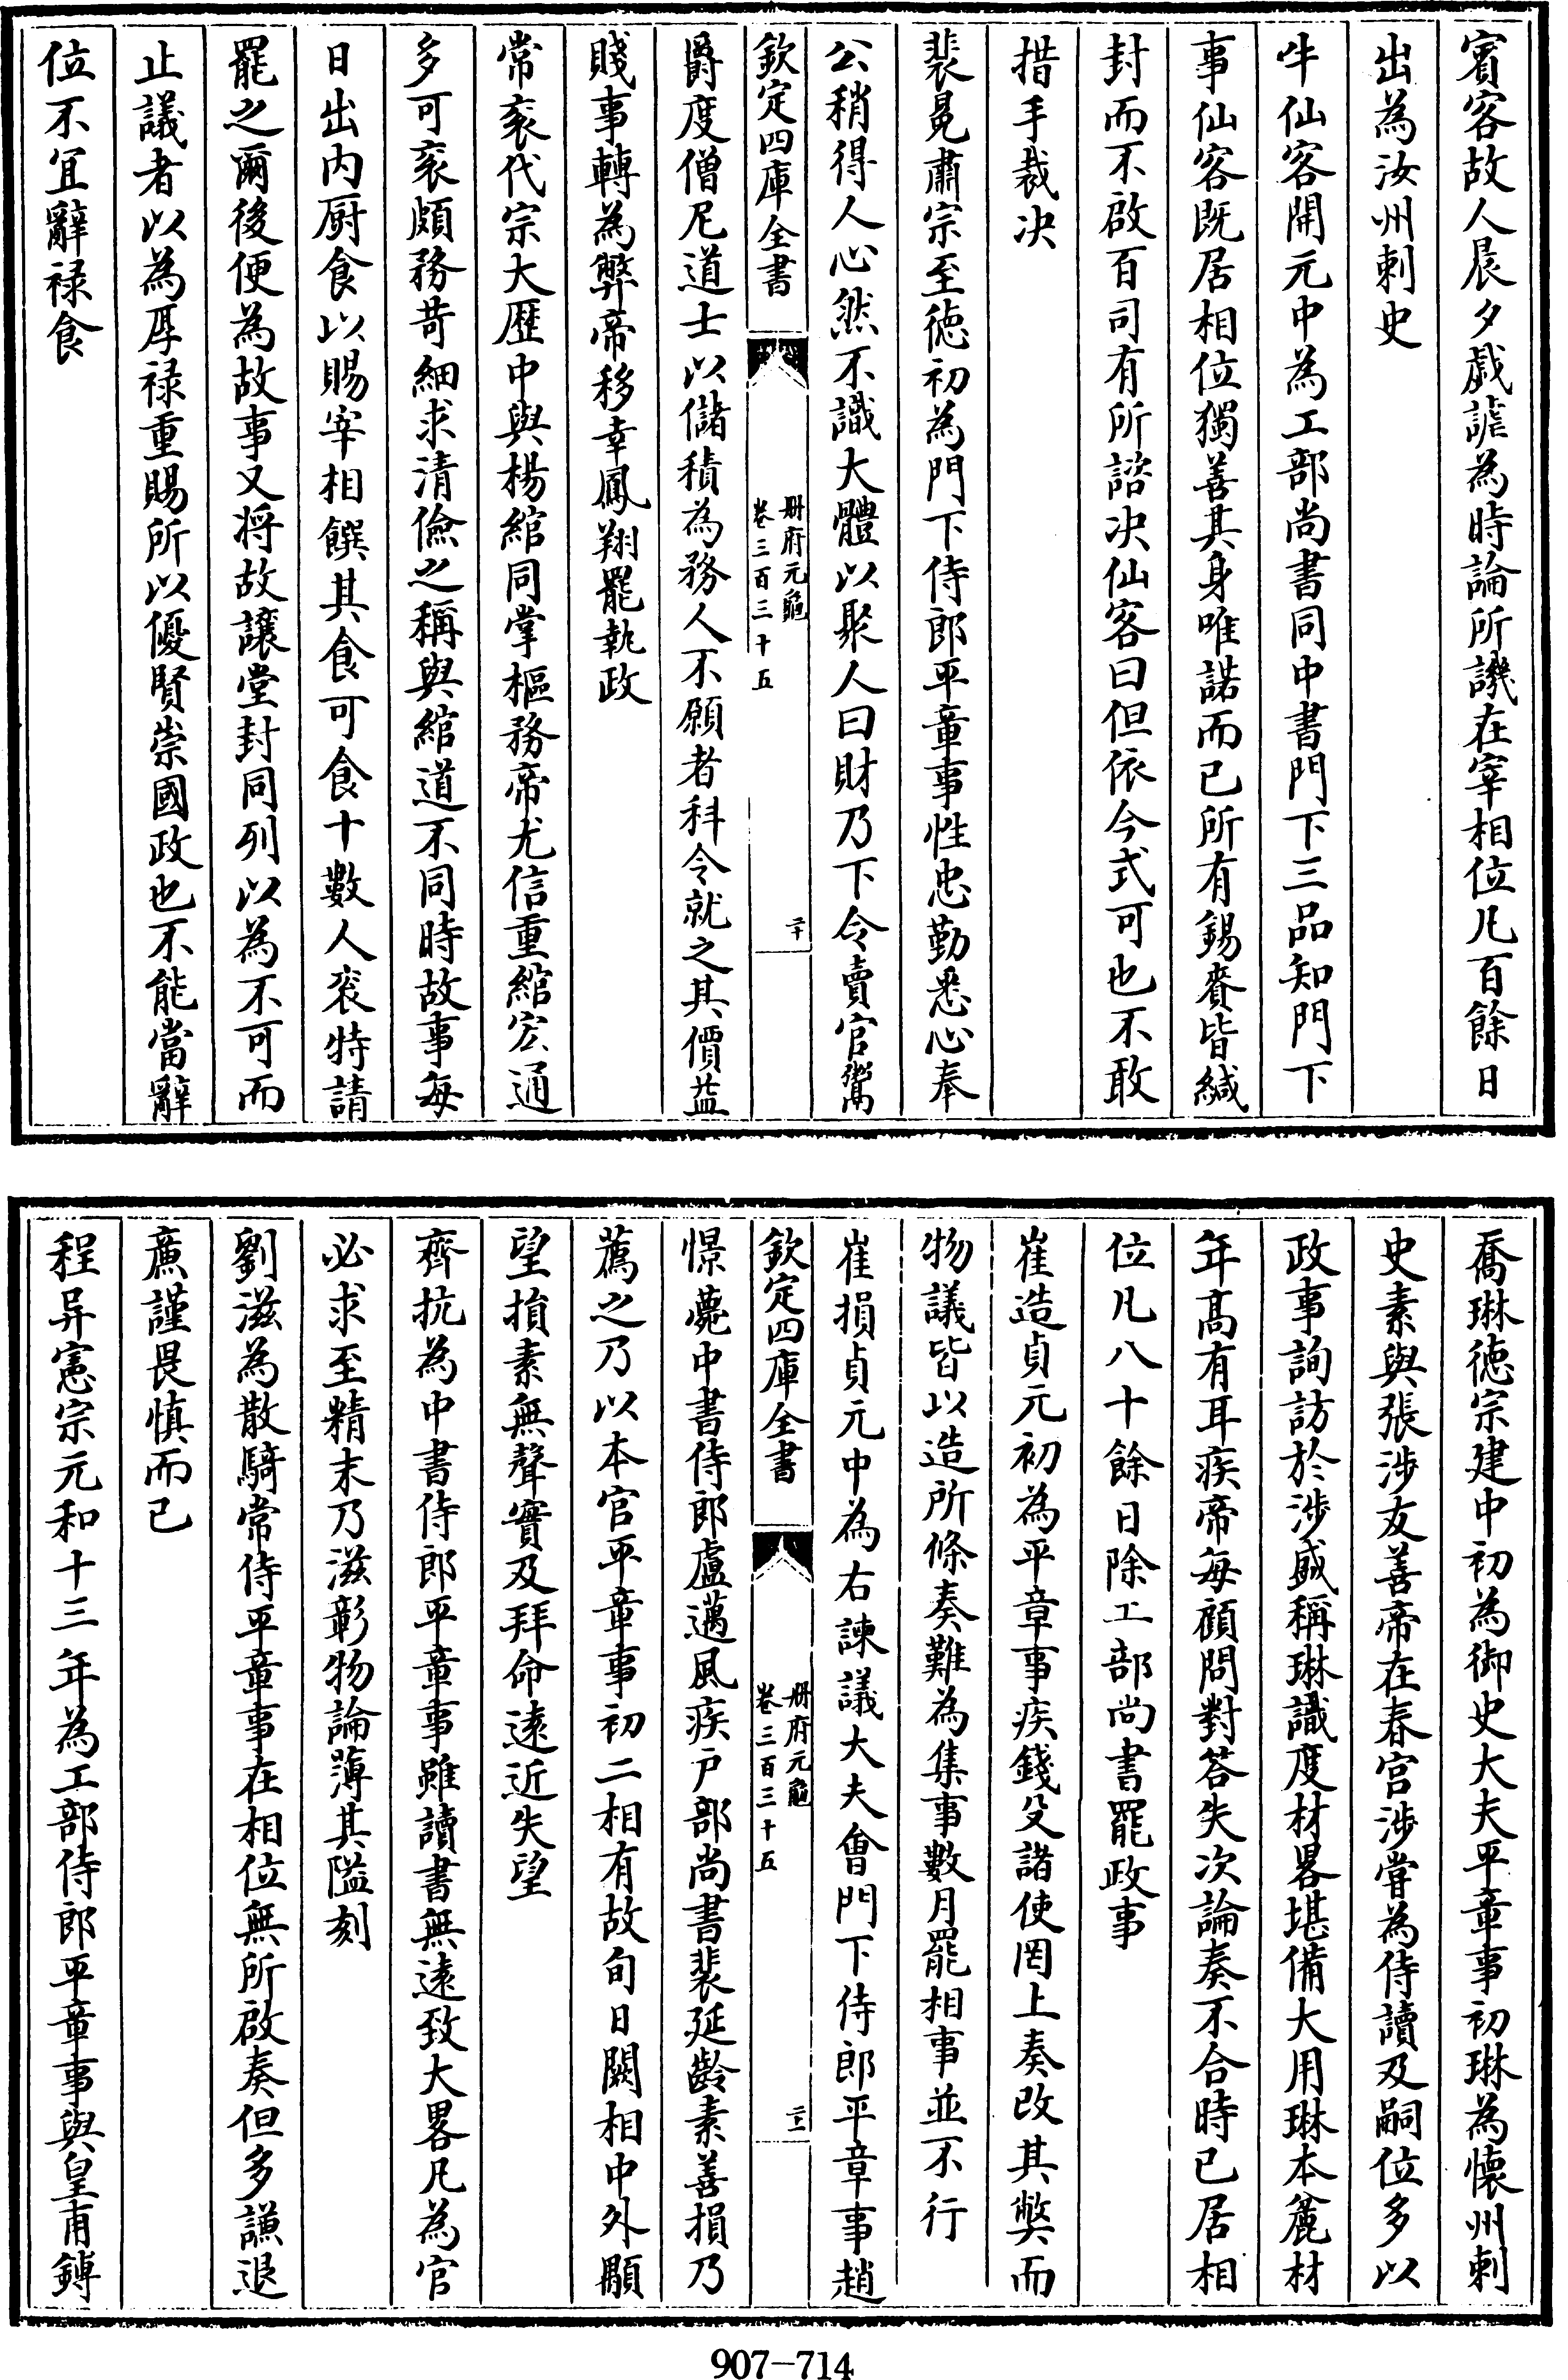 賓客故人晨夕戯謔為時論所譏在宰相位凡百餘日
出為汝州刺史
牛仙客開元中為工部尚書同中書門下三品知門下
事仙客既居相位獨善其身唯諾而已所有錫賚皆緘
封而不啟百司有所諮决仙客曰但依令式可也不敢
措手裁决
裴冕肅宗至徳初為門下侍郎平章事性忠勤悉心奉
公稍得人心然不識大體以聚人曰財乃下令賣官鬻
欽定四庫全書
冊府元龜
卷三百三十五
二十
爵度僧尼道士以儲積為務人不願者科令就之其價益
賤事轉為弊帝移幸鳳翔罷執政
常衮代宗大歴中與楊綰同掌樞務帝尤信重綰宏通
多可衮頗務苛細求清儉之稱與綰道不同時故事每
日出内厨食以賜宰相饌其食可食十數人衮特請
罷之爾後便為故事又将故讓堂封同列以為不可而
止議者以為厚禄重賜所以優賢崇國政也不能當辭
位不宜辭禄食
喬琳徳宗建中初為御史大夫平章事初琳為懷州刺
史素與張涉友善帝在春宫涉嘗為侍讀及嗣位多以
政事詢訪於涉盛稱琳識度材畧堪備大用琳本麄材
年髙有耳疾帝每顧問對答失次論奏不合時已居相
位凡八十餘日除工部尚書罷政事
崔造貞元初為平章事疾錢糓諸使罔上奏改其弊而
物議皆以造所條奏難為集事數月罷相事並不行
崔損貞元中為右諫議大夫會門下侍郎平章事趙
欽定四庫全書
冊府元龜
卷三百三十五
二十一
憬薨中書侍郎盧邁風疾户部尚書裴延齡素善損乃
薦之乃以本官平章事初二相有故旬日闕相中外顒
望損素無聲實及拜命逺近失望
齊抗為中書侍郎平章事雖讀書無逺致大畧凡為官
必求至精末乃滋彰物論薄其隘刻
劉滋為散騎常侍平章事在相位無所啟奏但多謙退
亷謹畏慎而已
程异憲宗元和十三年為工部侍郎平章事與皇甫鎛
907-714